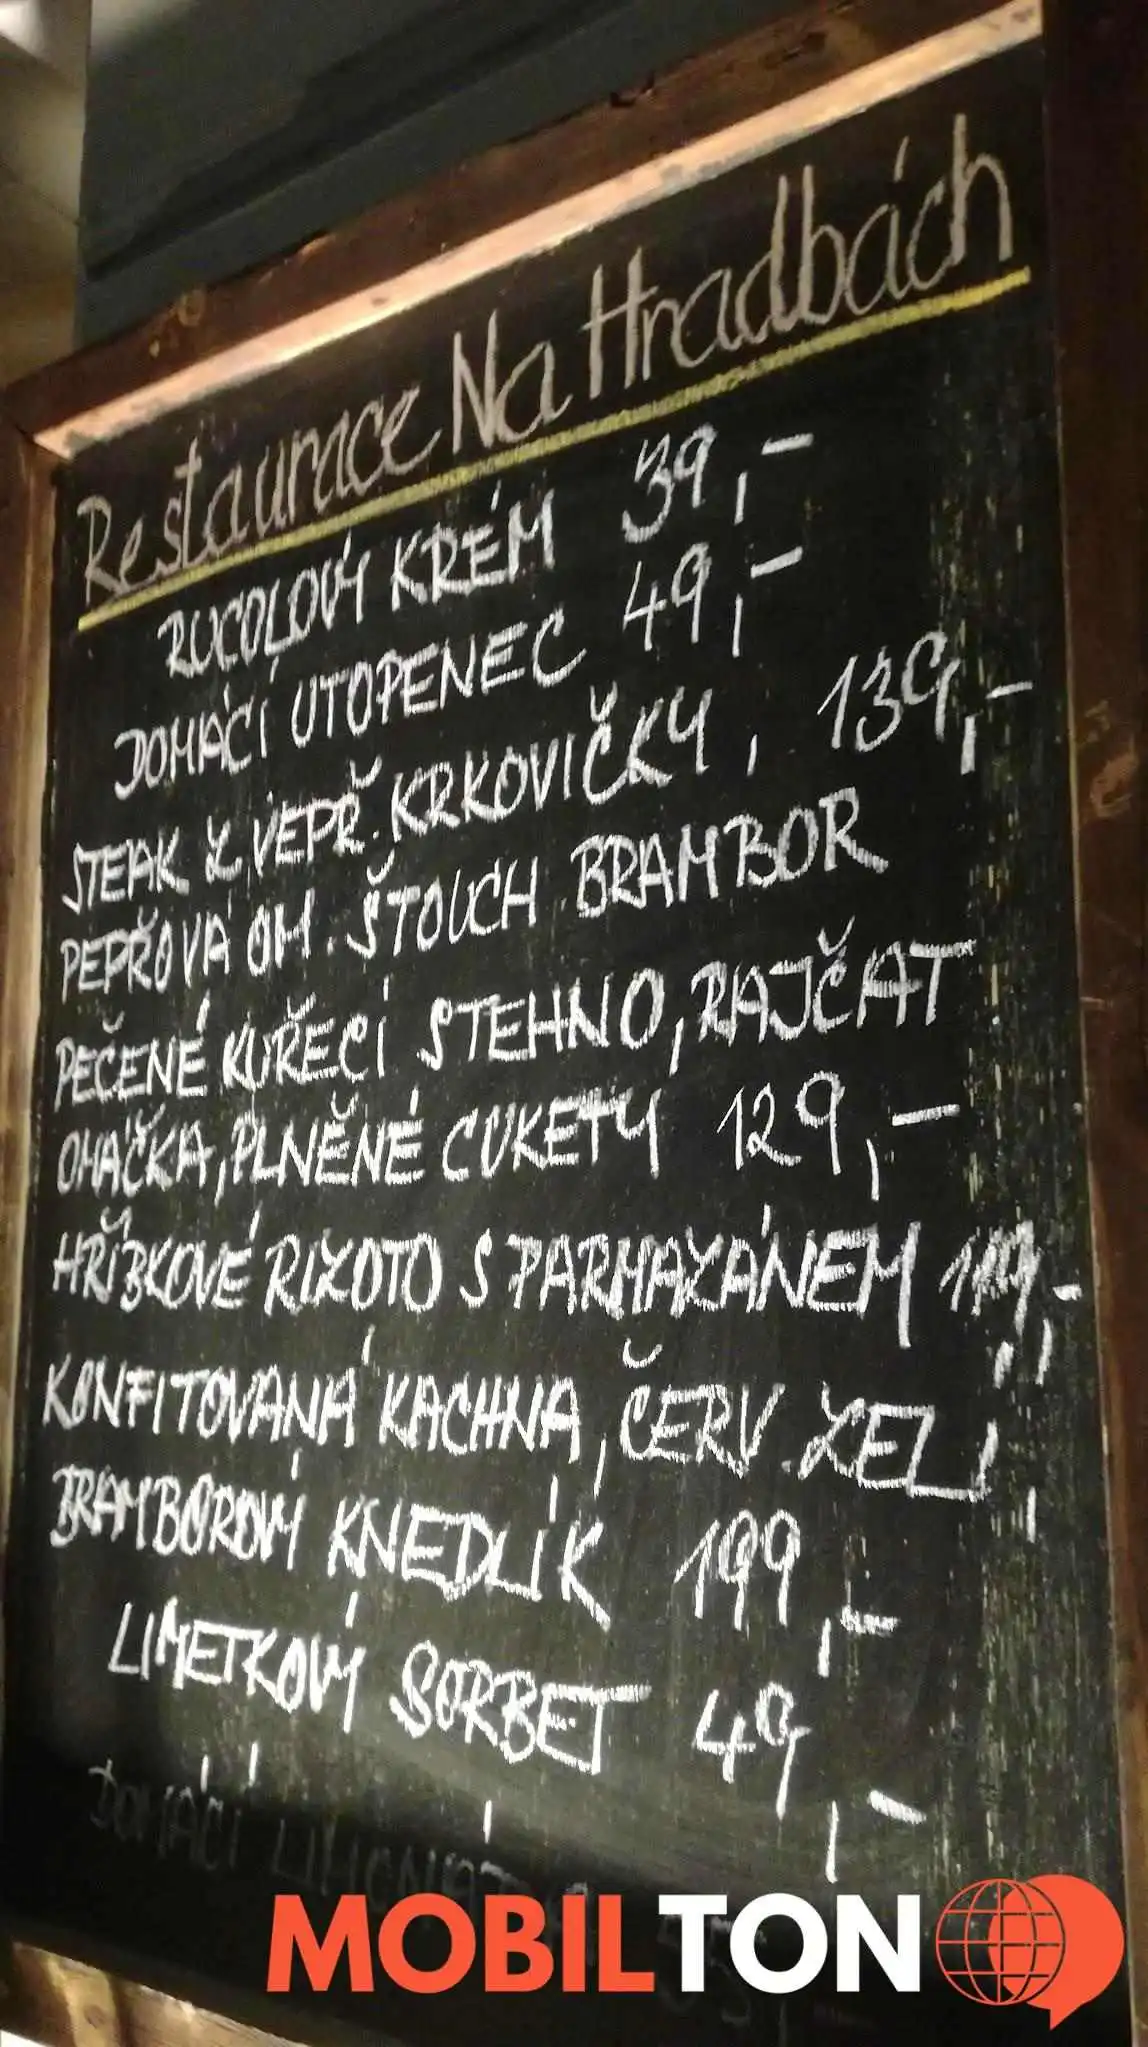 Restaurace Na Hradbách
RUCOLOVÝ KRÉM 39,-
DOMÁCÍ UTOPENEC 49,-
STEAK Z VEPŘ. KRKOVIČKY, 139,-
PEPŘOVÁ OM. ŠTOUCH BRAMBOR
PEČENÉ KUŘECÍ STEHNO, RAJČAT.
OMÁČKA, PLNĚNÉ CUKETY 129,-
HŘÍBKOVÉ RIZOTO S PARMAZÁNEM 119,-
KONFITOVANÁ KACHNA, ČERV. ZELÍ,
BRAMBOROVÝ KNEDLÍK 199,-
LIMETKOVÝ SORBET 49,-
DOMÁCÍ
MOBILTON